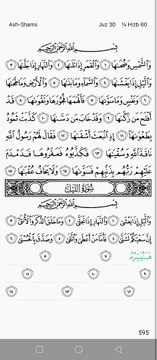 Ash-Shams
Juz 30
¼ Hizb 60
بِسْمِ اللَّهِ الرَّحْمَٰنِ الرَّحِيمِ
وَالشَّمْسِ وَضُحَاهَا ١ وَالْقَمَرِ إِذَا تَلَاهَا ٢ وَالنَّهَارِ إِذَا جَلَّاهَا ٣
وَاللَّيْلِ إِذَا يَغْشَاهَا ٤ وَالسَّمَاءِ وَمَا بَنَاهَا ٥ وَالْأَرْضِ وَمَا طَحَاهَا
٦ وَنَفْسٍ وَمَا سَوَّاهَا ٧ فَأَلْهَمَهَا فُجُورَهَا وَتَقْوَاهَا ٨ قَدْ
أَفْلَحَ مَن زَكَّاهَا ٩ وَقَدْ خَابَ مَن دَسَّاهَا ١٠ كَذَّبَتْ ثَمُودُ
بِطَغْوَاهَا ١١ إِذِ انبَعَثَ أَشْقَاهَا ١٢ فَقَالَ لَهُمْ رَسُولُ اللَّهِ
نَاقَةَ اللَّهِ وَسُقْيَاهَا ١٣ فَكَذَّبُوهُ فَعَقَرُوهَا فَدَمْدَمَ
عَلَيْهِمْ رَبُّهُم بِذَنبِهِمْ فَسَوَّاهَا ١٤ وَلَا يَخَافُ عُقْبَاهَا ١٥
سُورَةُ اللَّيْلِ
بِسْمِ اللَّهِ الرَّحْمَٰنِ الرَّحِيمِ
وَاللَّيْلِ إِذَا يَغْشَىٰ ١ وَالنَّهَارِ إِذَا تَجَلَّىٰ ٢ وَمَا خَلَقَ الذَّكَرَ وَالْأُنثَىٰ ٣
إِنَّ سَعْيَكُمْ لَشَتَّىٰ ٤ فَأَمَّا مَنْ أَعْطَىٰ وَاتَّقَىٰ ٥ وَصَدَّقَ بِالْحُسْنَىٰ ٦
فَسَنُيَسِّرُهُ
595